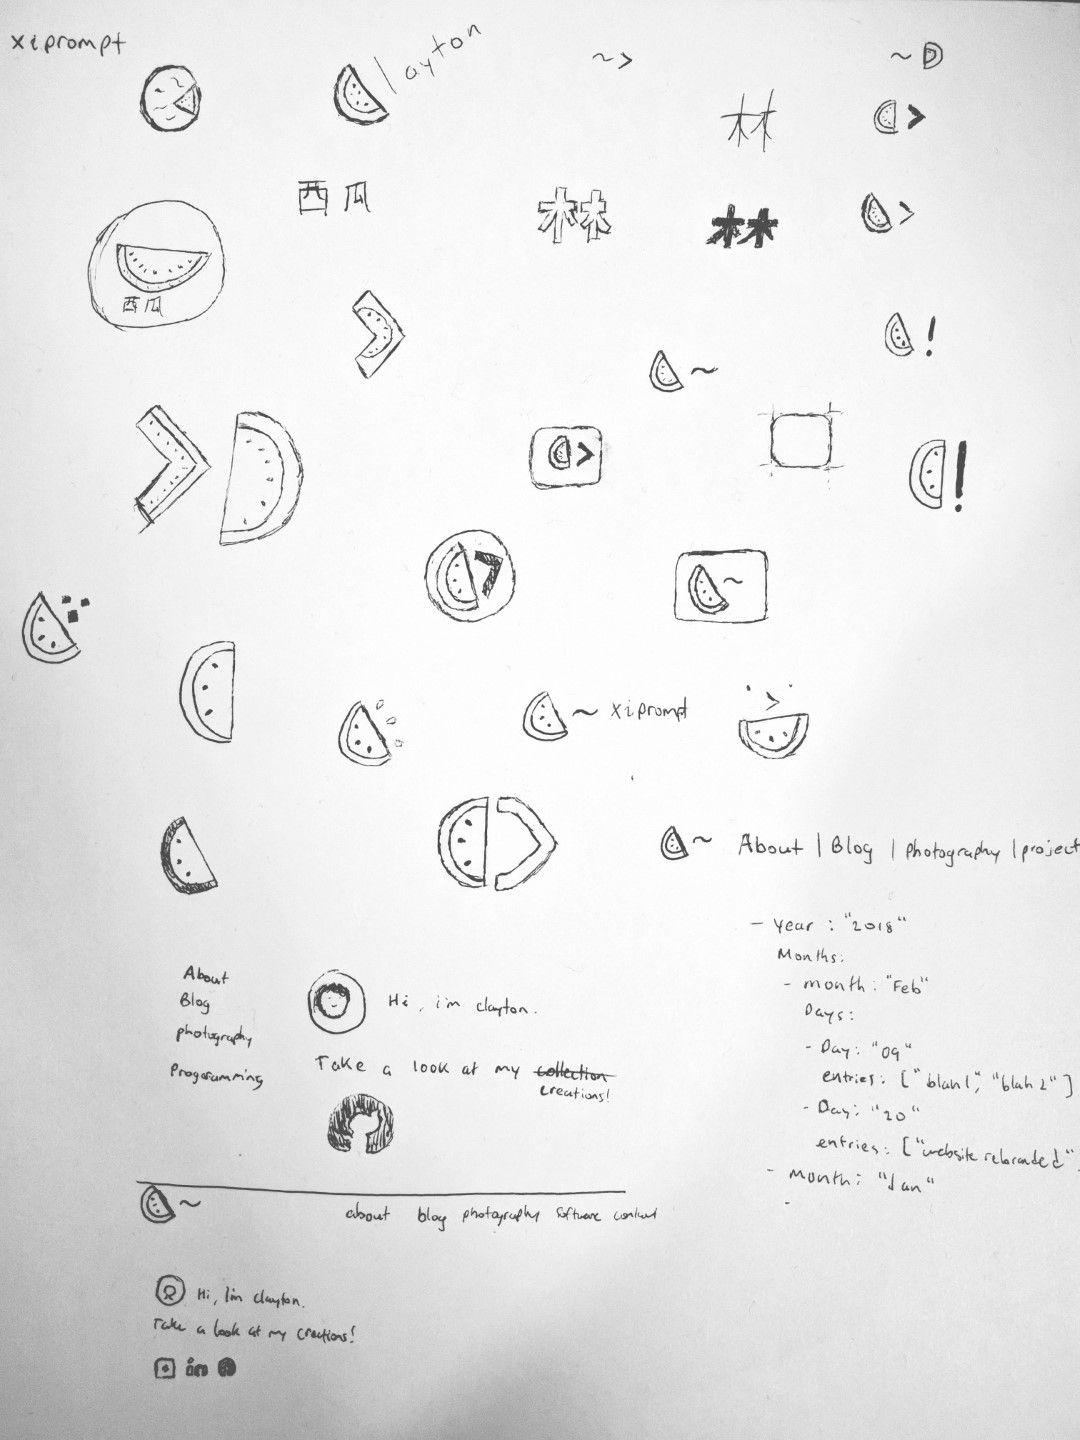 xiprompt
layton
~>
~
林
>
西瓜
林
林
>
西瓜
!
~
>
!
~
~ xiprompt
>
~ About | Blog | photography | project
- Year : "2018"
Months:
- month : "Feb"
Days:
- Day: "09"
entries: ["blah1", "blah2"]
- Day: "20"
entries: ["website rebranded"
- Month: "Jan"
-
About
Blog
photography
Programming
Hi, i'm clayton.
Take a look at my collection
creations!
~ about blog photography software contact
Hi, I'm clayton.
Take a look at my creations!
in